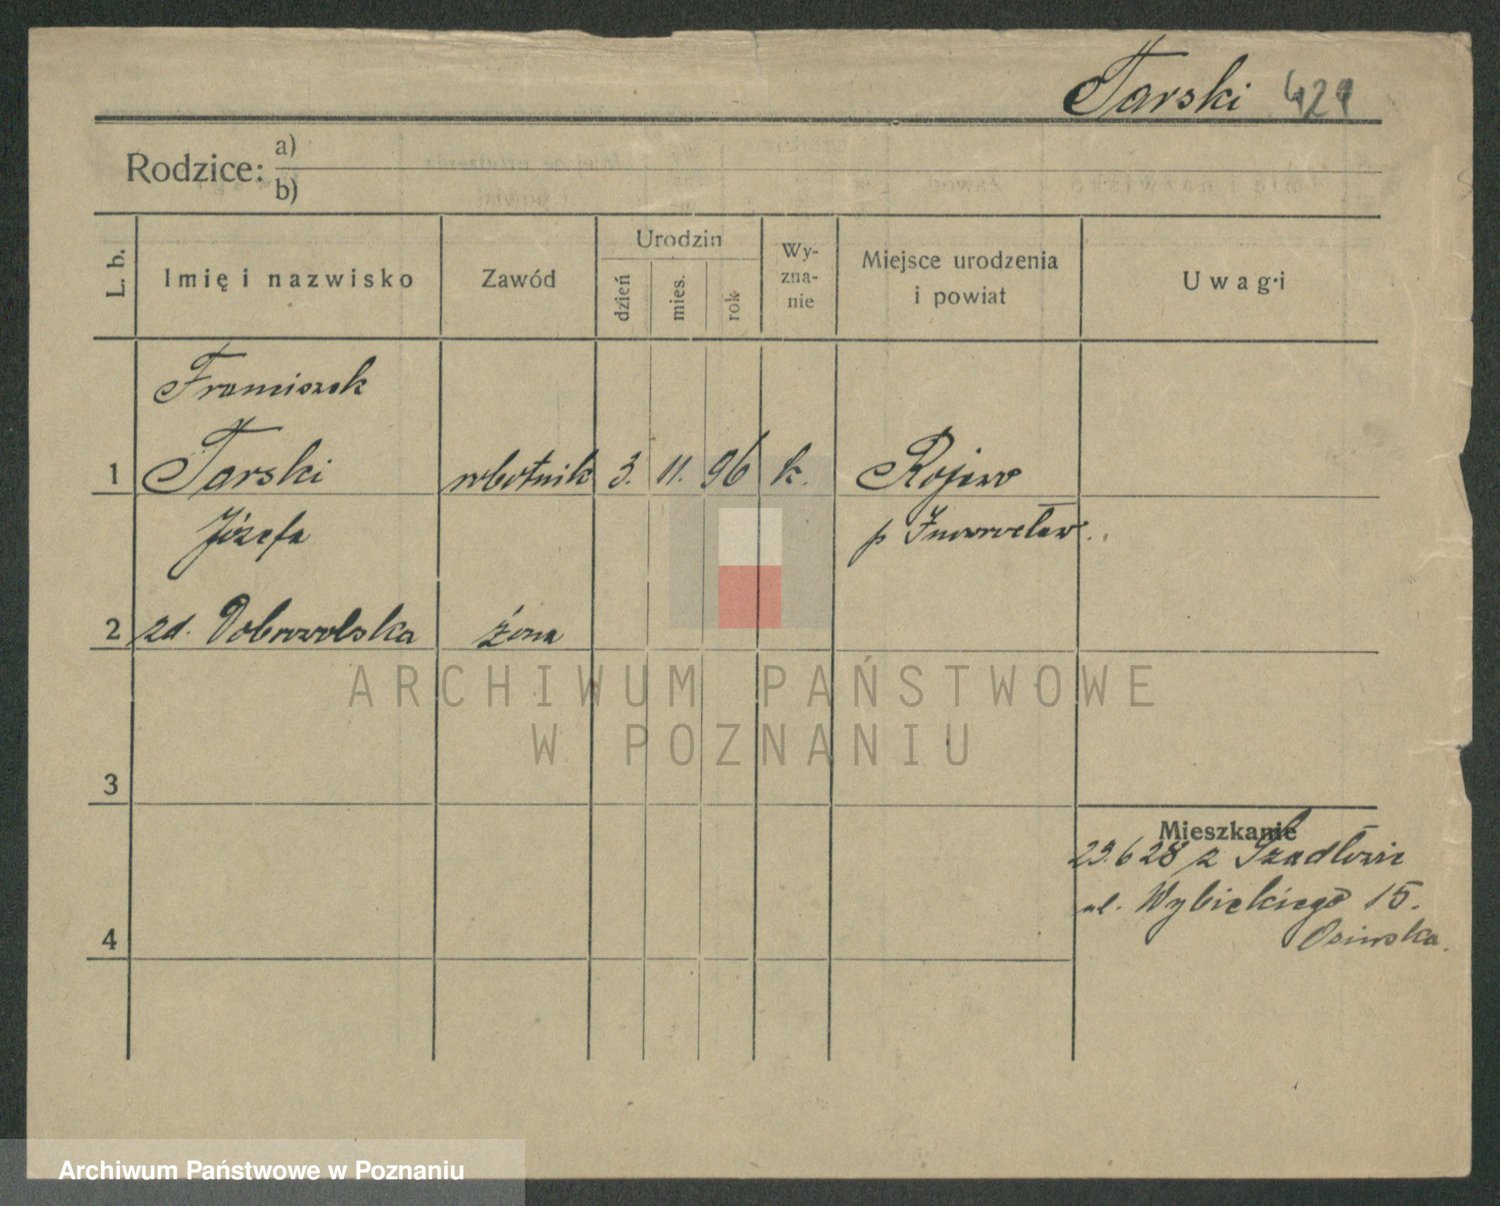 Tarski 421
Rodzice: a)
b)
L. b.
Imię i nazwisko
Zawód
Urodzin
dzień
mies.
rok
Wy-
zna-
nie
Miejsce urodzenia
i powiat
Uwagi
Franciszek
1 Tarski robotnik 3. 11. 96 k. Rojewo
Józefa p Inowrocław.
2 zd. Dobrowolska żona
3
Mieszkanie
29.6 28 z Szadłowic
ul. Wybickiego 15.
Osinska.
4
ARCHIWUM PAŃSTWOWE
W POZNANIU
Archiwum Państwowe w Poznaniu